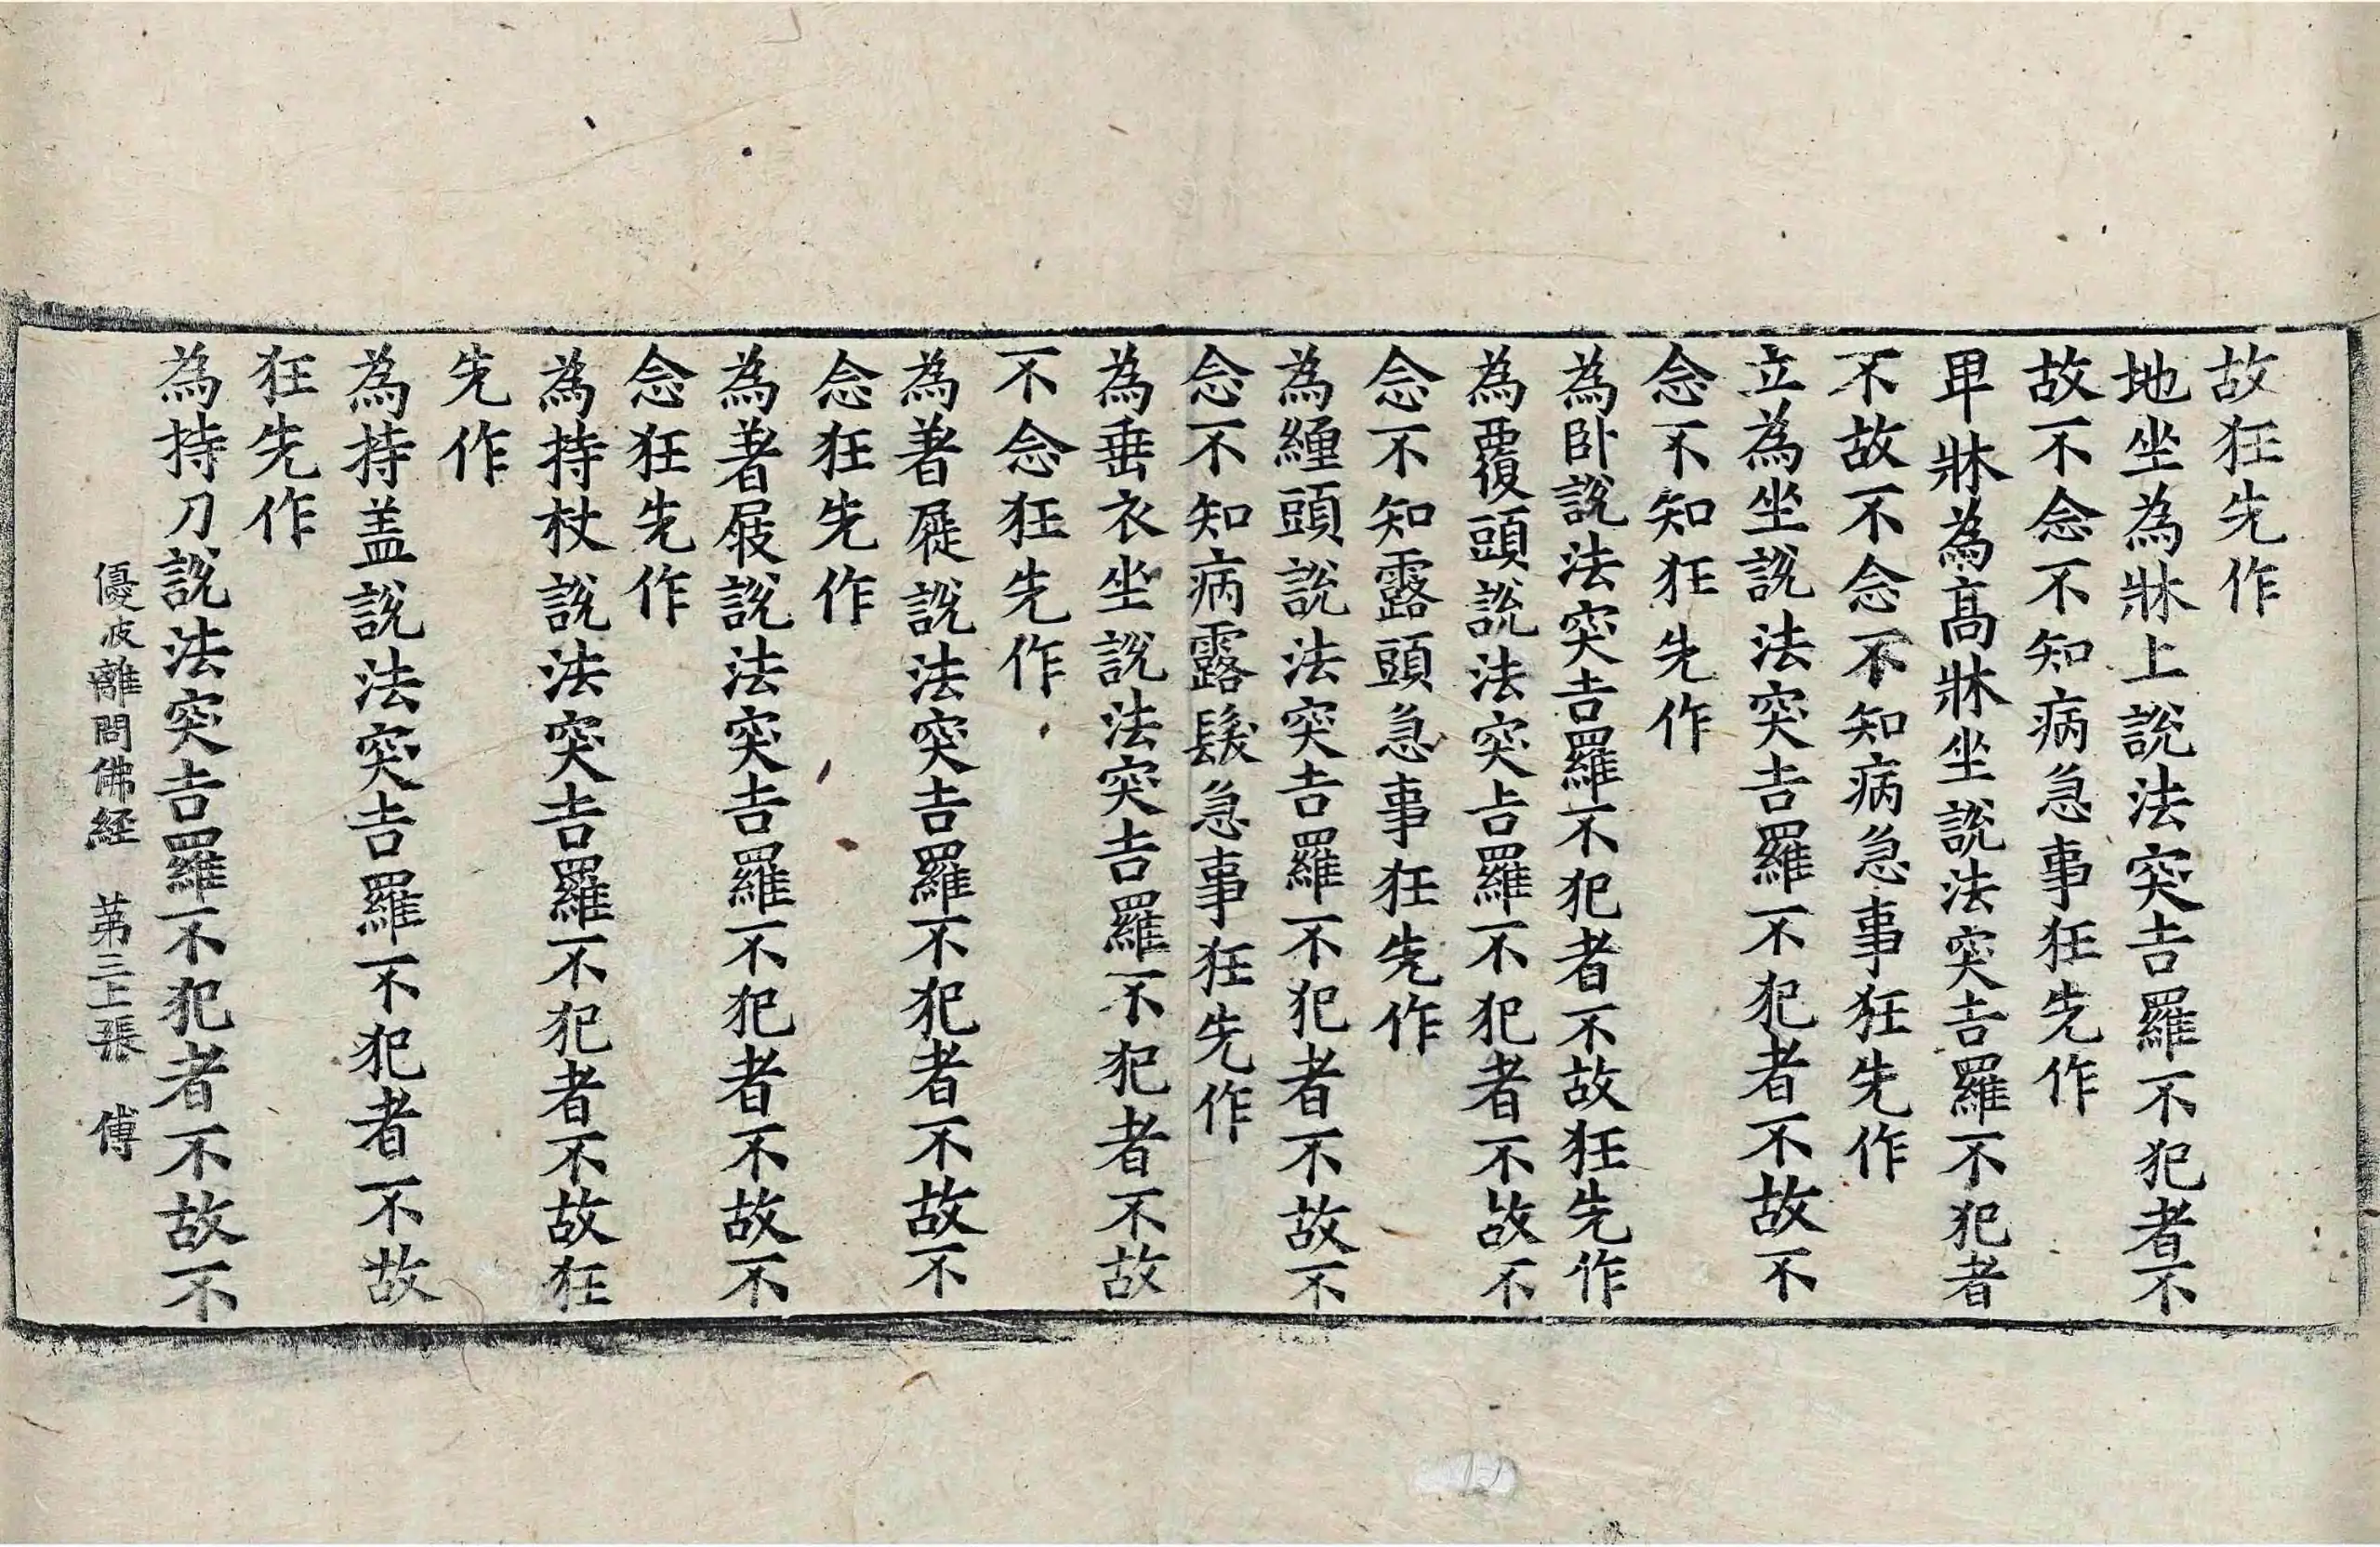 故狂先作
地坐為牀上說法突吉羅不犯者不
故不念不知病急事狂先作
卑牀為高牀坐說法突吉羅不犯者
不故不念不知病急事狂先作
立為坐說法突吉羅不犯者不故不
念不知狂先作
為卧說法突吉羅不犯者不故狂先作
為覆頭說法突吉羅不犯者不故不
念不知露頭急事狂先作
為纏頭說法突吉羅不犯者不故不
念不知病露髮急事狂先作
為垂衣坐說法突吉羅不犯者不故
不念狂先作
為著屣說法突吉羅不犯者不故不
念狂先作
為著屐說法突吉羅不犯者不故不
念狂先作
為持杖說法突吉羅不犯者不故狂
先作
為持盖說法突吉羅不犯者不故
狂先作
為持刀說法突吉羅不犯者不故不
優波離問佛経 苐三上張 傅